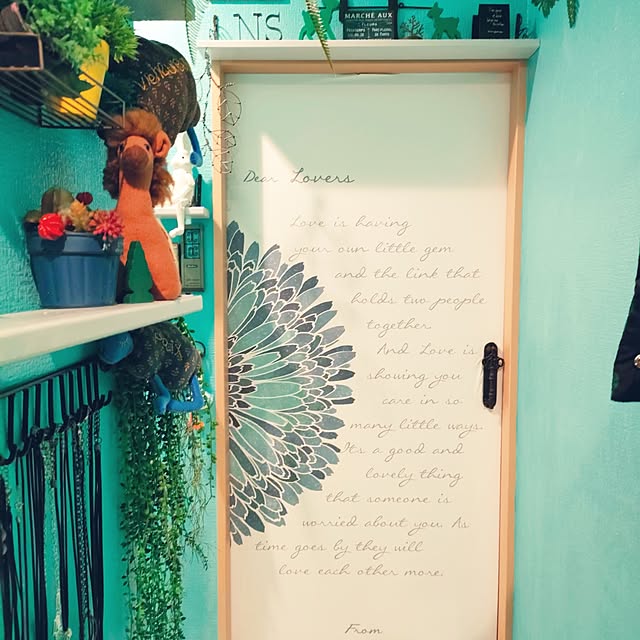 NS
MARCHÉ AUX
FLEURS
Dear Lovers
Love is having
your own little gem
and the link that
holds two people
together.
And Love is
showing you
care in so
many little ways.
It's a good and
lovely thing
that someone is
worried about you. As
time goes by they will
love each other more.
From